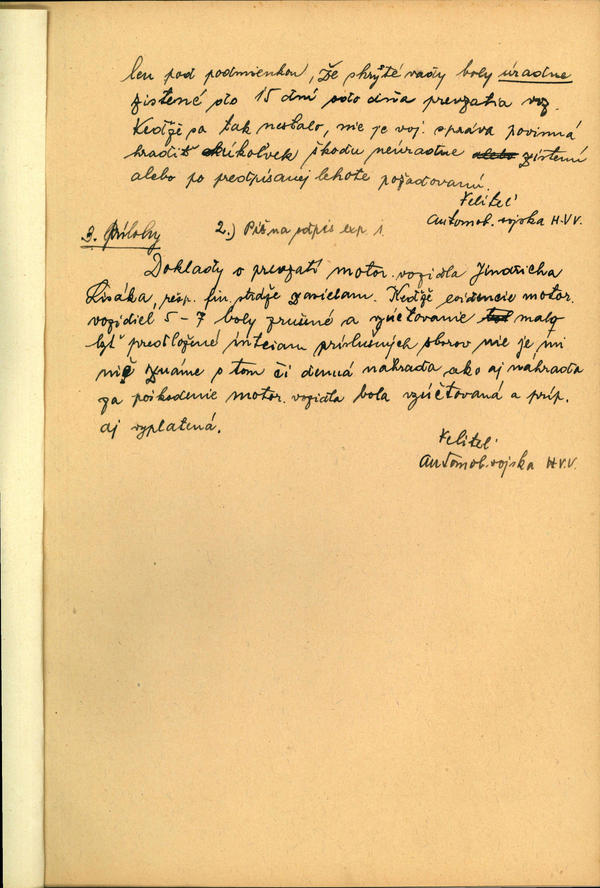 len pod podmienkou, že skryté vady boly úradne
zistené do 15 dní odo dňa prevzatia voz.
Keďže sa tak nestalo, nie je voj. správa povinná
hradiť akúkoľvek škodu neúradne alebo zistenú
alebo po predpísanej lehote požadovanú.
Veliteľ
Automob. vojska H.V.V.
3. Prílohy 2.) Píš na odpis exp. 1.
Doklady o prevzatí motor. vozidla Jindricha
Lisáka, resp. fin. stráže zasielam. Keďže evidencie motor.
vozidiel 5-7 boly zrušné a vyúčtovanie malo
byť predložené intciam príslušných sborov nie je mi
nič známe o tom či denná náhrada ako aj náhrada
za poškodenie motor. vozidla bola vyúčtovaná a príp.
aj vyplatená.
Veliteľ
Automob. vojska H.V.V.